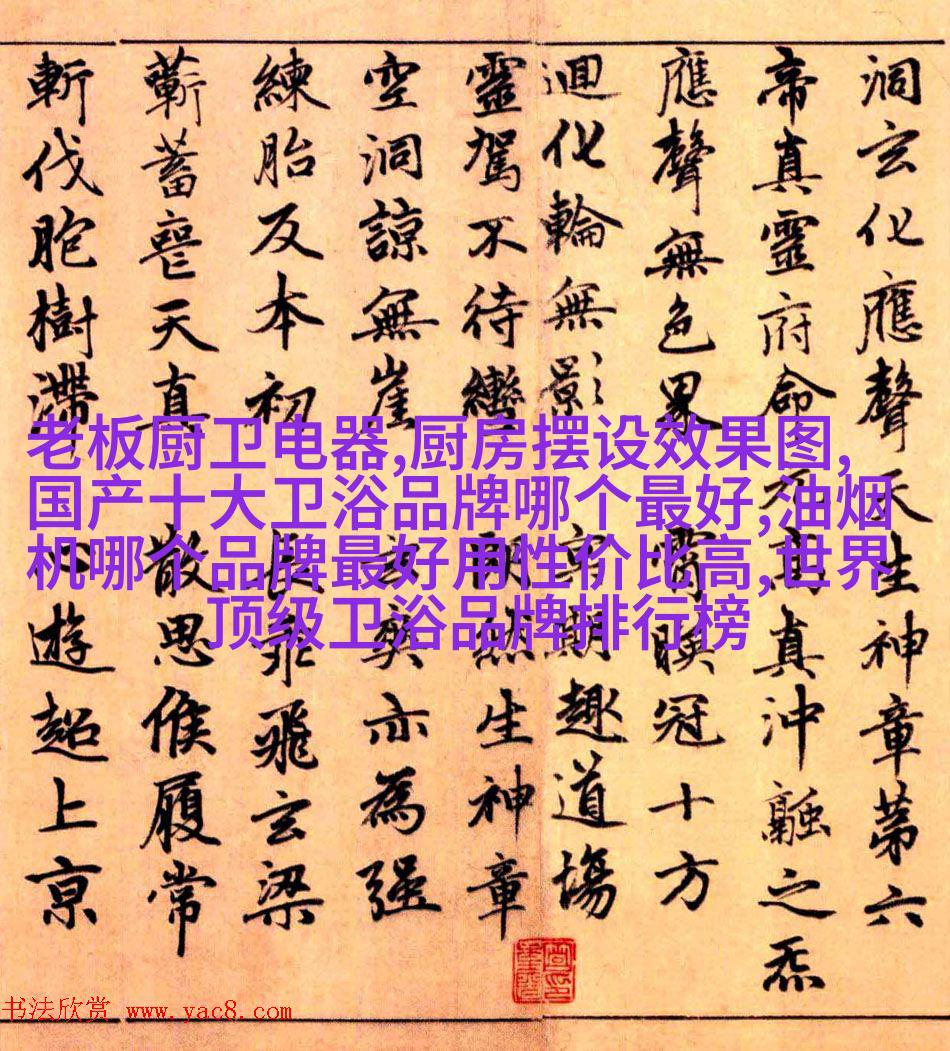 老板厨卫电器,厨房摆设效果图,
国产十大卫浴品牌哪个最好,油烟
机哪个品牌最好用性价比高,世界
顶级卫浴品牌排行榜
洞玄化應聲天生神章苐六
帝真靈府命元高真沖融之炁
應聲無色界霄暎冠十方
迴化輪無影冥期趣道場
靈駕不待轡朗赫生神章
空洞諒無崖玄爽亦為强
練胎反本初長乖飛玄梁
蘄蓄喪天真散思候履常
斬伐胞樹滯心遊超上京
书法欣赏 www.yac8.com